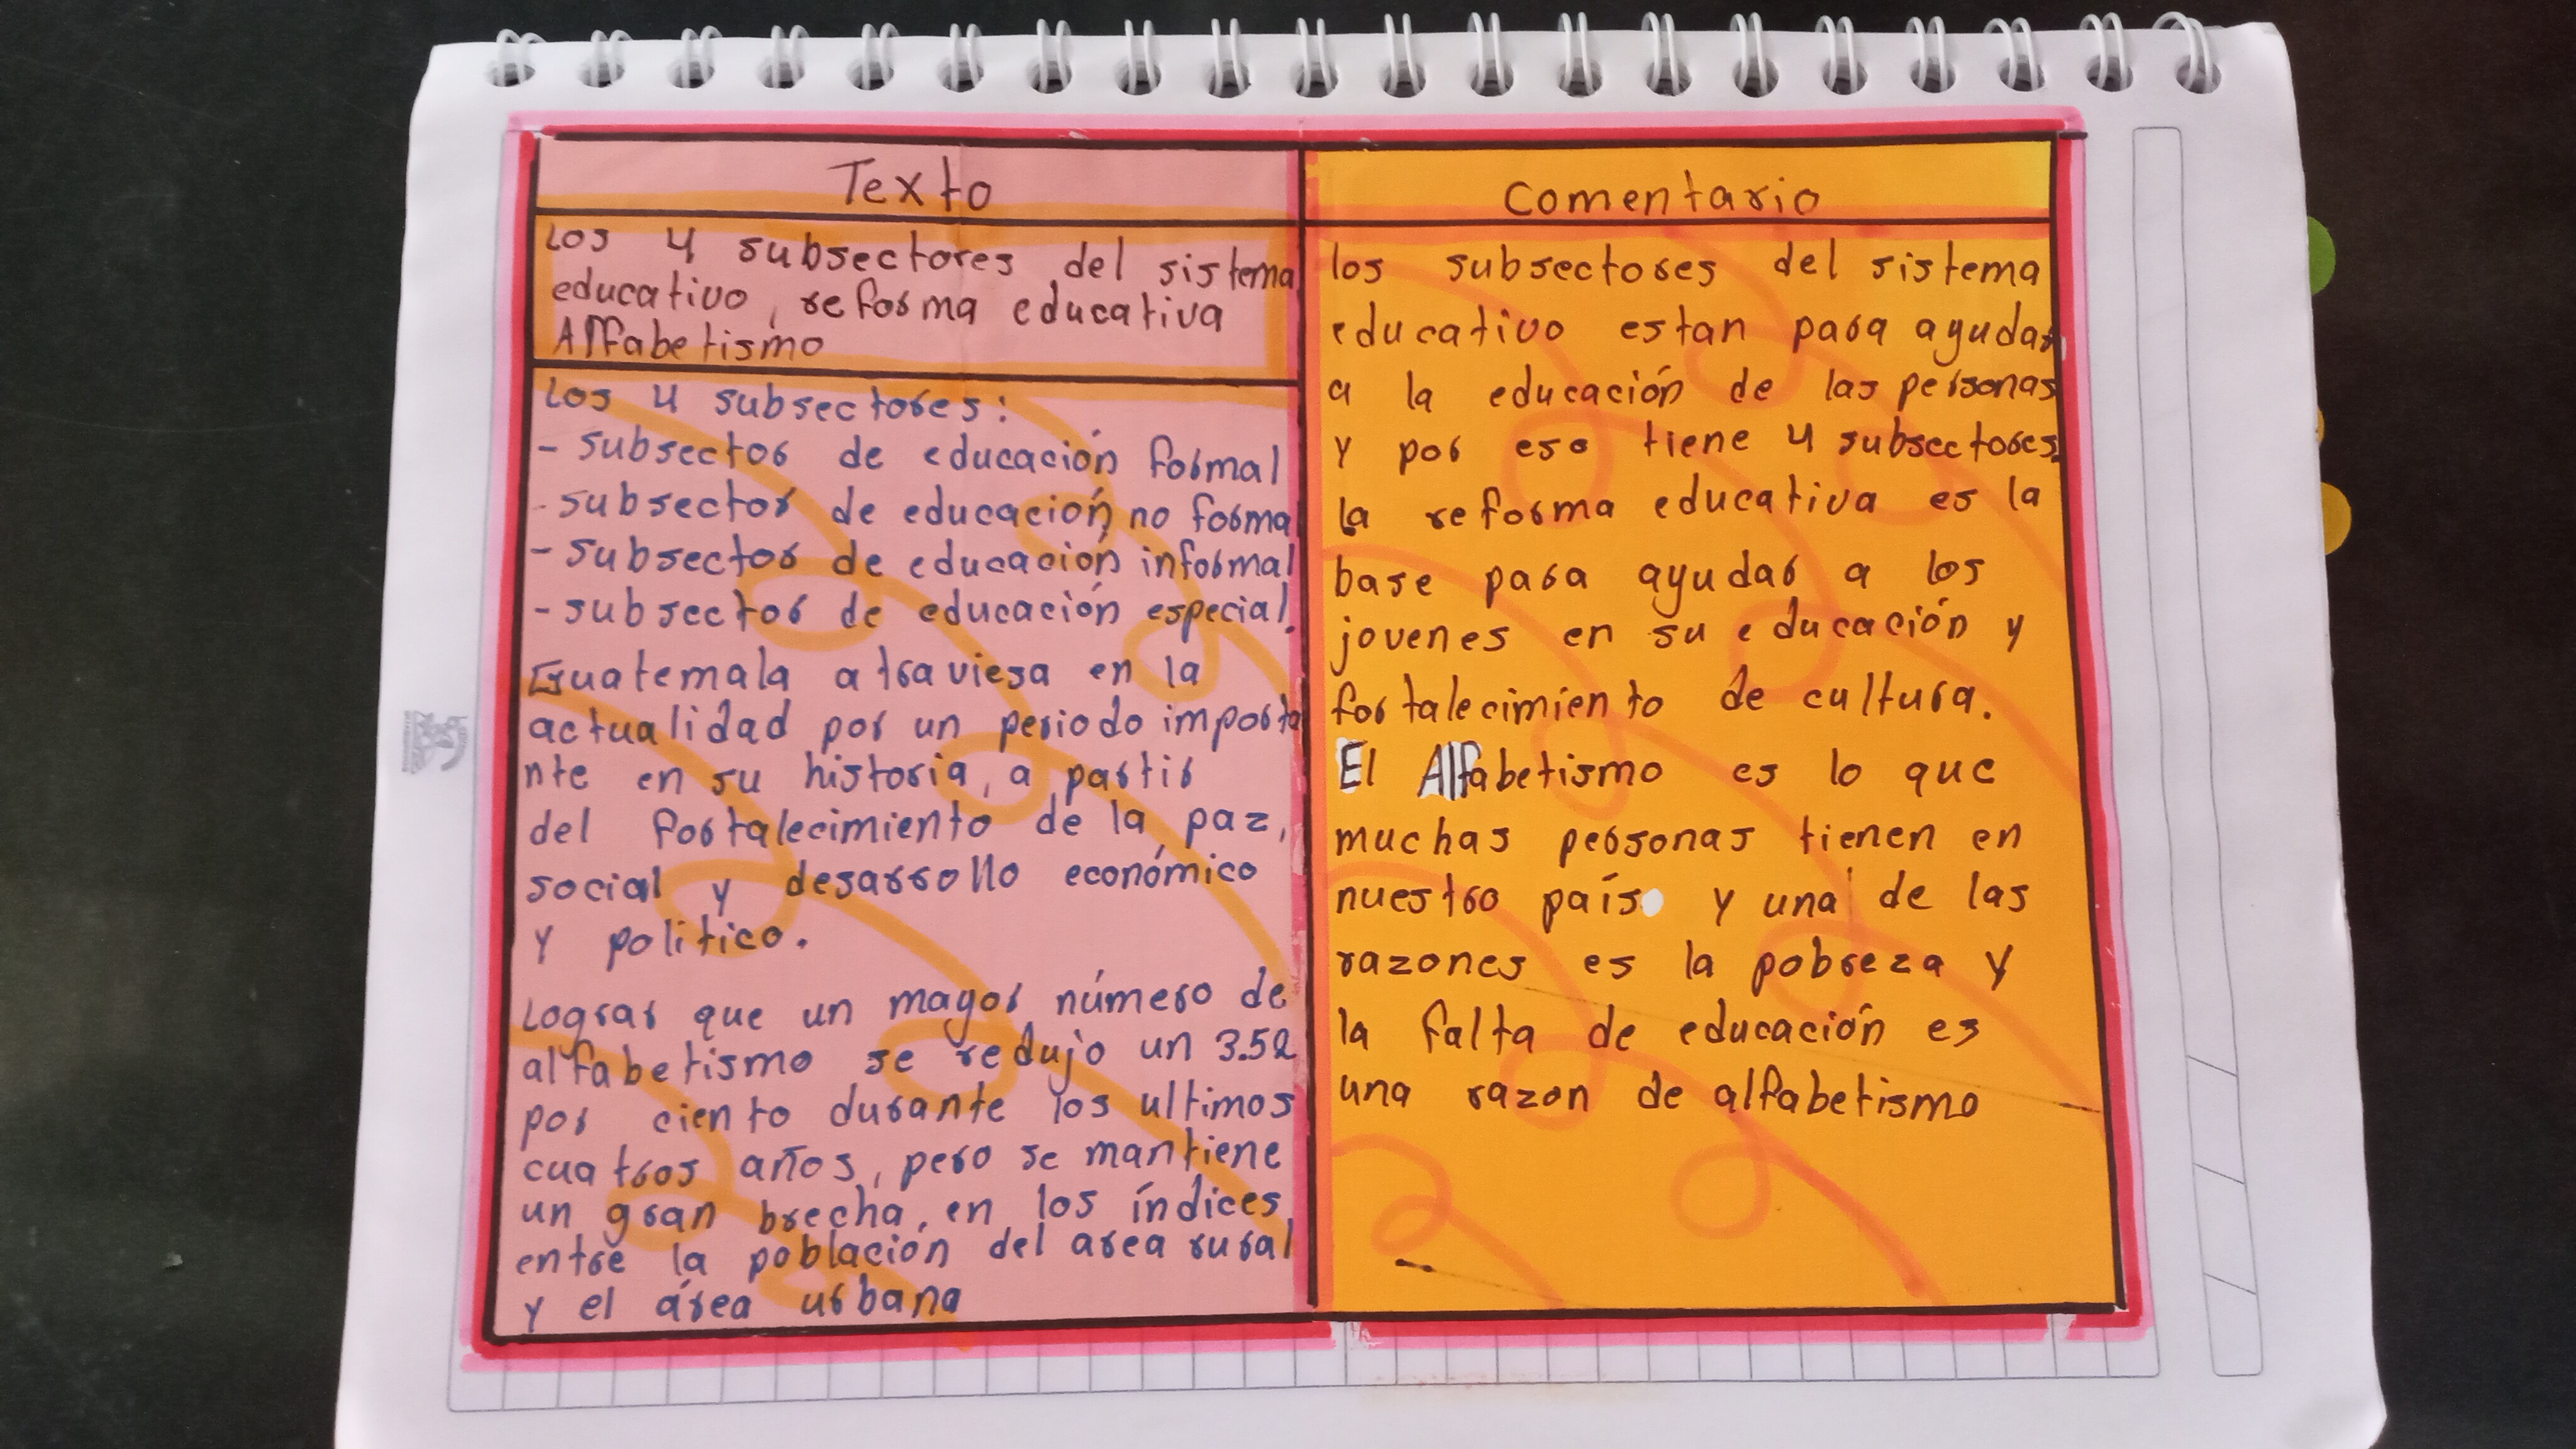 Texto
Los 4 subsectores del sistema
educativo, reforma educativa
Alfabetismo
Los 4 subsectores:
- subsector de educación formal
- subsector de educación no forma
- subsector de educación informal
- subsector de educación especial.
Guatemala atraviesa en la
actualidad por un periodo importa
nte en su historia, a partir
del fortalecimiento de la paz,
social y desarrollo económico
y politico.
Lograr que un mayor número de
alfabetismo se redujo un 3.52
por ciento durante los ultimos
cuatros años, pero se mantiene
un gran brecha, en los índices
entre la población del area rural
y el área urbana
Comentario
los subsectores del sistema
educativo estan para ayudar
a la educación de las personas
y por eso tiene 4 subsectores.
La reforma educativa es la
base para ayudar a los
jovenes en su educación y
fortalecimiento de cultura.
El Alfabetismo es lo que
muchas personas tienen en
nuestro país y una de las
razones es la pobreza y
la falta de educación es
una razon de alfabetismo